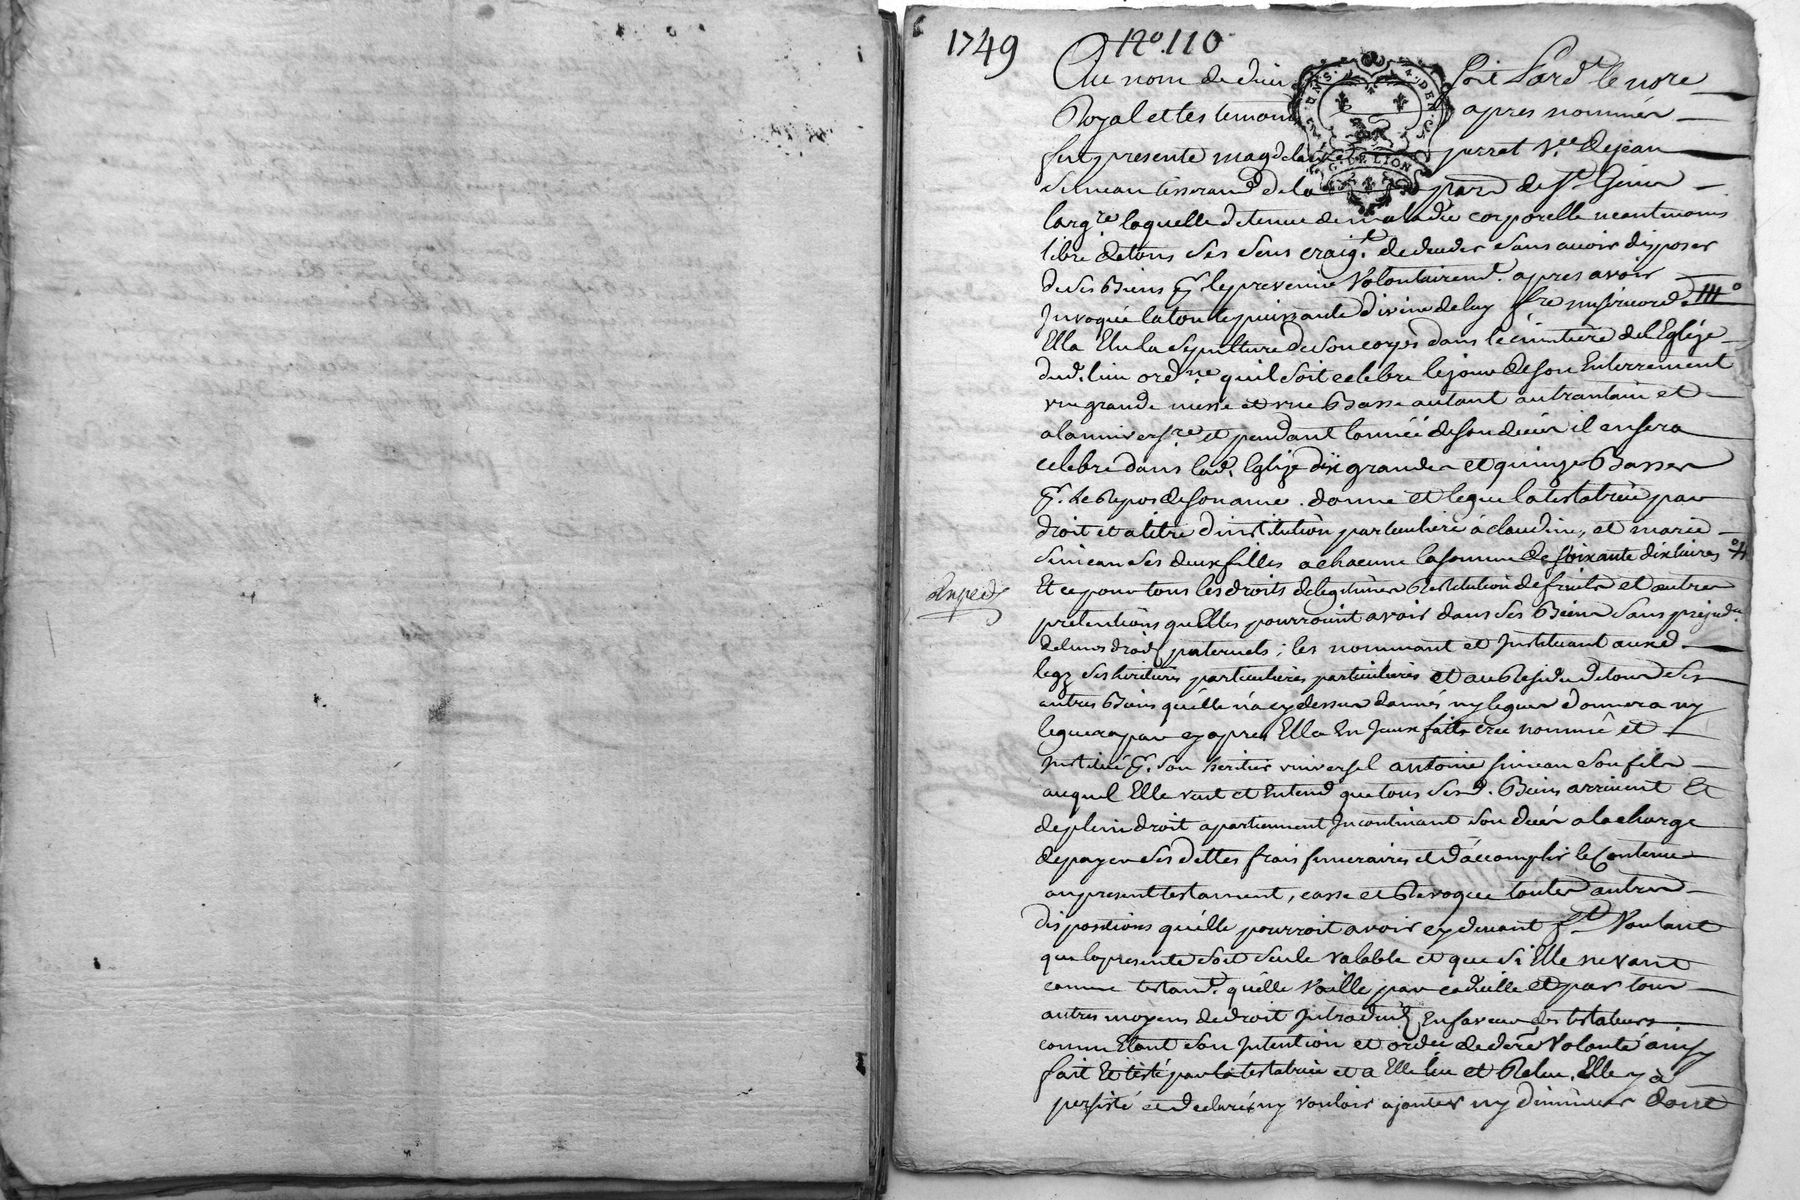 1749 No. 110
Au nom de dieu soit Pard.t le no.re
Royal et tesmoins apres nommés
fut presente magdelaine perret v.ve de jean
simean tisserand de la parr. de St Genis
larg.re laquelle detenue de maladie corporelle neantmoins
libre de tous ses sens craig.t de deceder sans avoir disposer
de ses Biens p.r le prevenir volontairem.t apres avoir
Invoquée la toute puissante divine de luy f.re misericorde
Ella Elu la sepulture de son corps dans le cimitiere de l'Eglize
dud. lieu ord.ne quil soit celebré le jour de son Enterrement
une grande messe et une Basse autant au trantain et
a lannivers.re et pendant l'année de son decés il en sera
celebré dans lad. Eglize dix grandes et quinze Basses
p.r le Repos de son ame. donne et legue la testatrice par
droit et a titre d'institution particuliere à claudine, et marie
simean ses deux filles a chacune la somme de soixante dix livres
Et ce pour tous les droits de legitimes Restitution de fruits et autres
pretentions quelles pourroient avoir dans ses Biens sans prejud.ce
de leurs droits paternels; les nommant et Instituant auxd.
legz ses heritieres particulieres particulieres et au Residu de tous ses
autres Biens qu'elle n'a cy dessus donnés ny legués donnera ny
leguera par cy apres Ella En Iceux faitte crée nommé et
Institué p.r son heritier universel antoine simean son fils
auquel Elle veut et Entend que tous sesd. Biens arrivent Et
de plein droit apartiennent Incontinant son decés a la charge
de payer ses dettes frais funeraires et d'accomplir le Contenu
au present testament, casse et Revoque toutes autres
dispositions qu'elle pourroit avoir cy devant f.t voulant
que la presente soit seule valable et que si Elle ne vaut
comme testam.t qu'elle vaille par codicille et par tous
autres moyens de droit Introduits En faveur des testateurs
comme Etant son Intention et ord.ce de dern.re volonté ainsy
fait Et testé par la testatrice et a Elle lu et Relu, Elle y à
persisté et declaré ny vouloir ajouter ny diminuer dont